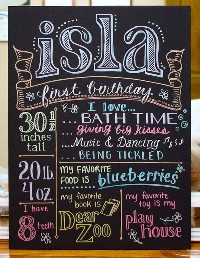 isla
first birthday
I love...
...BATH TIME
giving big kisses
...Music & Dancing
...BEING TICKLED
30 1/2
inches
tall
20 lb
4 oz
I have
8 teeth
MY FAVORITE
FOOD IS
blueberries
my favorite
book is
Dear
Zoo
my favorite
toy is my
play
house